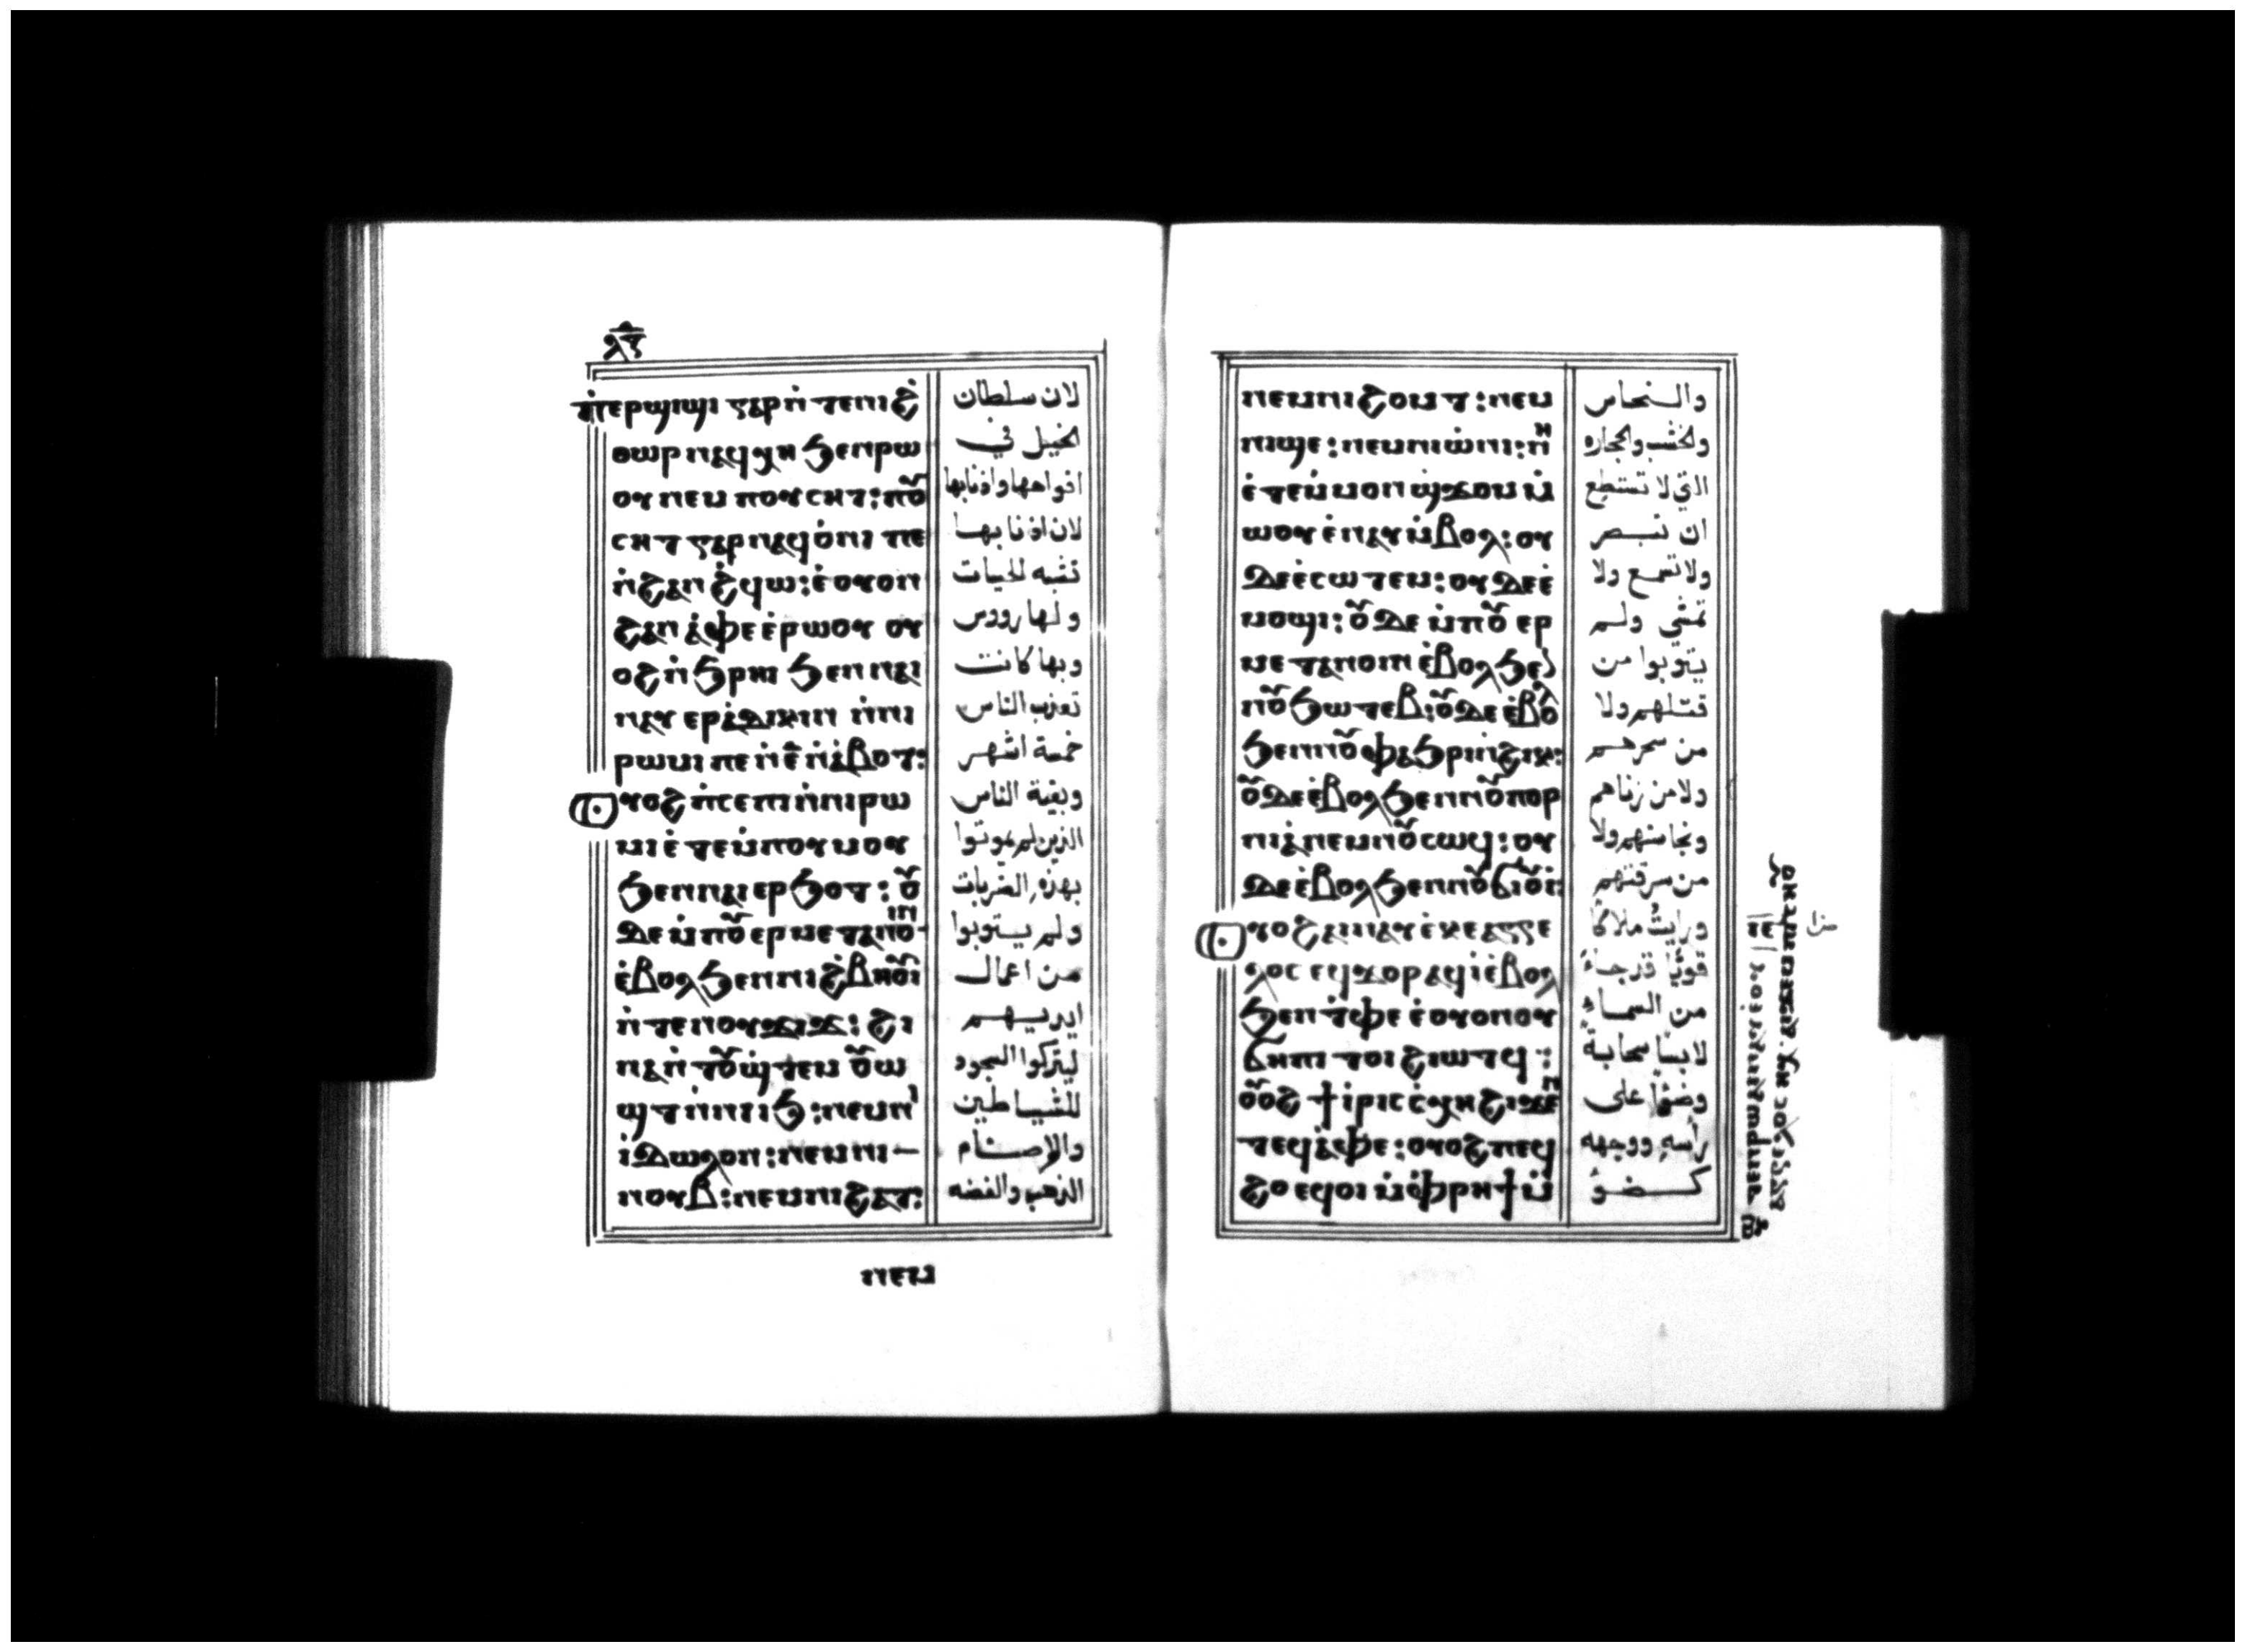 ⲡⲓⲉⲣϣⲓϣⲓ ⲅⲁⲣ ⲛ̀ⲧⲉⲛⲓϩ̀
ⲑⲱⲣ ⲛⲁϥⲭⲏ ϧⲉⲛⲣⲱ
ⲟⲩ ⲛⲉⲙ ⲛⲟⲩⲥⲏⲧ: ⲛⲟⲩ
ⲥⲏⲧ ⲅⲁⲣ ⲛⲁϥⲟ̀ⲛⲓ ⲛⲉ
ⲛ̀ϩⲁⲛ ϩ̀ϥⲱ: ⲉ̀ⲟⲩⲟⲛ
ϩⲁⲛ ⲁ̀ⲫⲉ ⲉ̀ⲣⲱⲟⲩ ⲟⲩ
ⲟϩ ⲛ̀ϧⲣⲏⲓ ϧⲉⲛ ⲛⲁⲓ
ⲛⲁⲩ ⲉⲣⲁ̀ⲇⲓⲕⲓⲛ ⲛ̀ⲛⲓ
ⲣⲱⲙⲓ ⲛⲉ ⲛ̀ⲉ̅ ⲛ̀ⲁ̀ⲃⲟⲧ:
ⲟⲩⲟϩ ⲛ̀ⲥⲉⲡⲓ ⲛ̀ⲛⲓⲣⲱ
ⲙⲓ ⲉ̀ⲧⲉⲙ̀ⲡⲟⲩⲙⲟⲩ
ϧⲉⲛⲛⲁⲓ ⲉⲣϧⲟⲧ: ⲟⲩ
ⲇⲉ ⲙ̀ⲡⲟⲩⲉⲣⲙⲉⲧⲁⲛⲟⲓⲛ
ⲉ̀ⲃⲟⲗϧⲉⲛⲛⲓϩ̀ⲃⲏⲟⲩⲓ
ⲛ̀ⲧⲉⲛⲟⲩϫⲓϫ: ϩⲓ
ⲛⲁ ⲛ̀ⲧⲟⲩϣⲧⲉⲙ ⲟⲩⲱ
ϣⲧ ⲛ̀ⲛⲓⲓϧ: ⲛⲉⲙ
ⲛⲓⲓ̀ⲇⲱⲗⲟⲛ: ⲛⲉⲙⲛⲓ
ⲛⲟⲩⲃ: ⲛⲉⲙⲛⲓϩⲁⲧ:
ⲛⲉⲙ
لان سلطان
الخيل في
افواهها واذنابها
لان اذنابها
تشبه للحيات
ولها رووس
وبها كانت
تعذب الناس
خمسة اشهر
وبقية الناس
الذين لم يموتوا
بهذه الضربات
ولم يستوبوا
من اعمال
ايديهم
ليتركوا السجود
للشياطين
والاصنام
الذهب والفضه
ⲛⲉⲙⲛⲓϩⲟⲙⲧ: ⲛⲉⲙ
ⲛⲓϣⲉ: ⲛⲉⲙⲛⲓⲱ̀ⲛⲓ: ⲛⲏ
ⲉ̀ⲧⲉⲙ̀ⲙⲟⲛ ϣϫⲟⲙ ⲙ̀ⲙ
ⲱⲟⲩ ⲉ̀ⲛⲁⲩ ⲙ̀ⲃⲟⲗ: ⲟⲩ
ⲇⲉ ⲉ̀ⲥⲱⲧⲉⲙ: ⲟⲩⲇⲉ ⲉ̀
ⲙⲟϣⲓ: ⲟⲩⲇⲉ ⲙ̀ⲡⲟⲩ ⲉⲣ
ⲙⲉⲧⲁⲛⲟⲓⲛ ⲉ̀ⲃⲟⲗϧⲉⲛ
ⲛⲟⲩϧⲱⲧⲉⲃ: ⲟⲩⲇⲉ ⲉ̀ⲃⲟⲗ
ϧⲉⲛⲛⲟⲩⲫⲁϧⲣⲓ ⲛ̀ϩⲓⲕ:
ⲟⲩⲇⲉ ⲉ̀ⲃⲟⲗϧⲉⲛⲛⲟⲩⲡⲟⲣ
ⲛⲓⲁ̀ ⲛⲉⲙⲛⲟⲩⲥⲱϥ: ⲟⲩ
ⲇⲉ ⲉ̀ⲃⲟⲗϧⲉⲛⲛⲟⲩϭⲓⲟⲩⲓ:
ⲟⲩⲟϩ ⲁⲓⲛⲁⲩ ⲉ̀ⲕⲉⲁⲅⲅⲉ
ⲗⲟⲥ ⲉϥϫⲟⲣ ⲁϥⲓ̀ ⲉ̀ⲃⲟⲗ
ϧⲉⲛ ⲧ̀ⲫⲉ ⲉ̀ⲟⲩⲟⲛ ⲟⲩ
ϭⲏⲡⲓ ⲧⲟⲓ ϩⲓⲱⲧϥ:
ⲟⲩⲟϩ ϯⲓ̀ⲣⲓⲥ ⲉ̀ⲥⲭⲏ ϩⲓϫⲉⲛ
ⲧⲉϥⲁ̀ⲫⲉ: ⲟⲩⲟϩ ⲡⲉϥ
ϩⲟ ⲉϥⲟⲓ ⲙ̀ⲫ̀ⲣⲏϯ ⲙ̀
والنحاس
والخشب والحجاره
التي لا تستطع
ان تبصر
ولا تسمع ولا
تمشي ولم
يتوبوا من
قتلهم ولا
من سحرهم
ولا من زناهم
ونجاستهم ولا
من سرقتهم
ورايتُ ملاكًا
قويًا قد جاء
من السماء
لابسًا سحابة
وضوًا على
راسه ووجهه
كضو